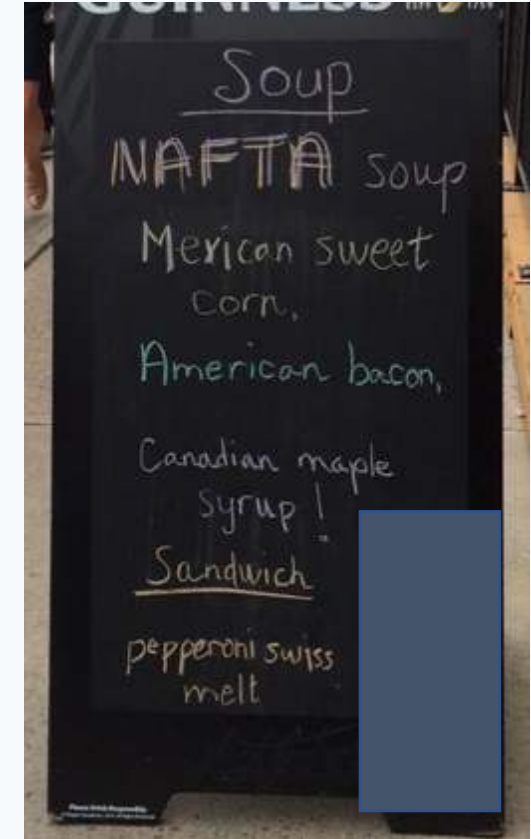 GUINNESS
Soup
NAFTA soup
Mexican sweet
corn,
American bacon,
Canadian maple
syrup!
Sandwich
pepperoni swiss
melt
Please Drink Responsibly.